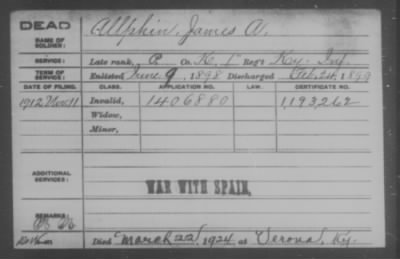 DEAD
NAME OF SOLDIER: Allphin, James A.
SERVICE: Late rank, P Co. K, 1" Reg't Ky. Inf.
TERM OF SERVICE: Enlisted June 9, 1898 Discharged Feb. 24, 1899
DATE OF FILING. CLASS. APPLICATION NO. LAW. CERTIFICATE NO.
1912 Invalid, 1406880 1,193,262
Widow,
Minor,
ADDITIONAL SERVICES:
WAR WITH SPAIN.
REMARKS:
Died March 22, 1924 at Verona, Ky.